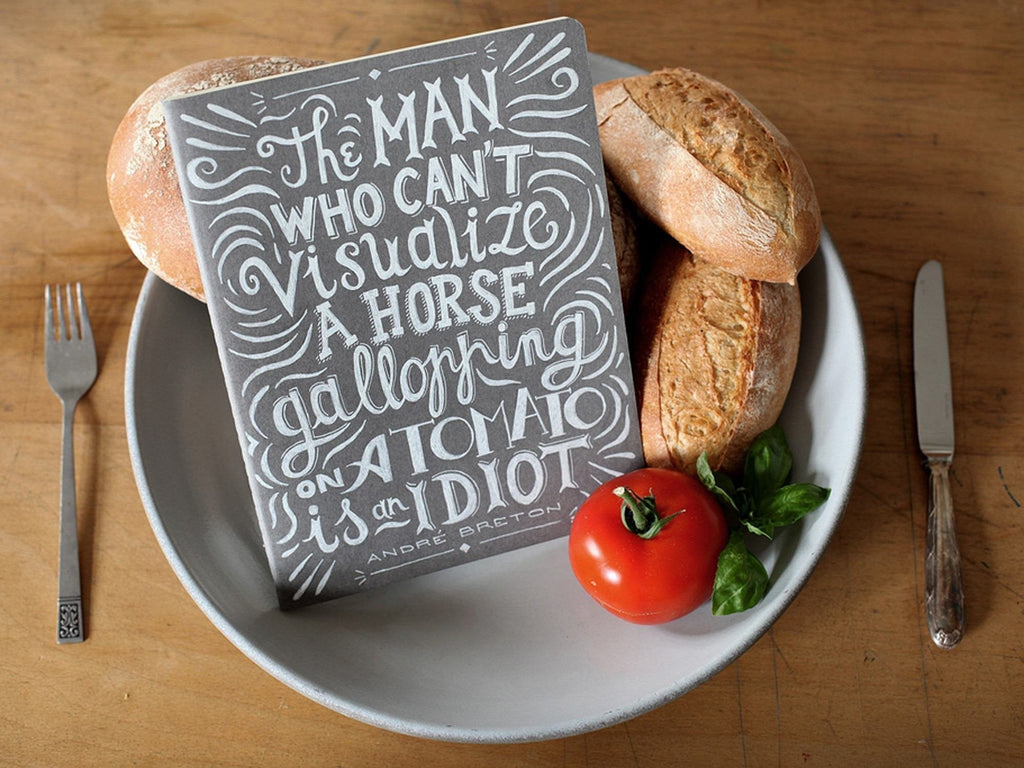 The MAN
WHO CAN'T
Visualize
A HORSE
gallopping
ON A TOMATO
is an IDIOT
ANDRÉ BRETON